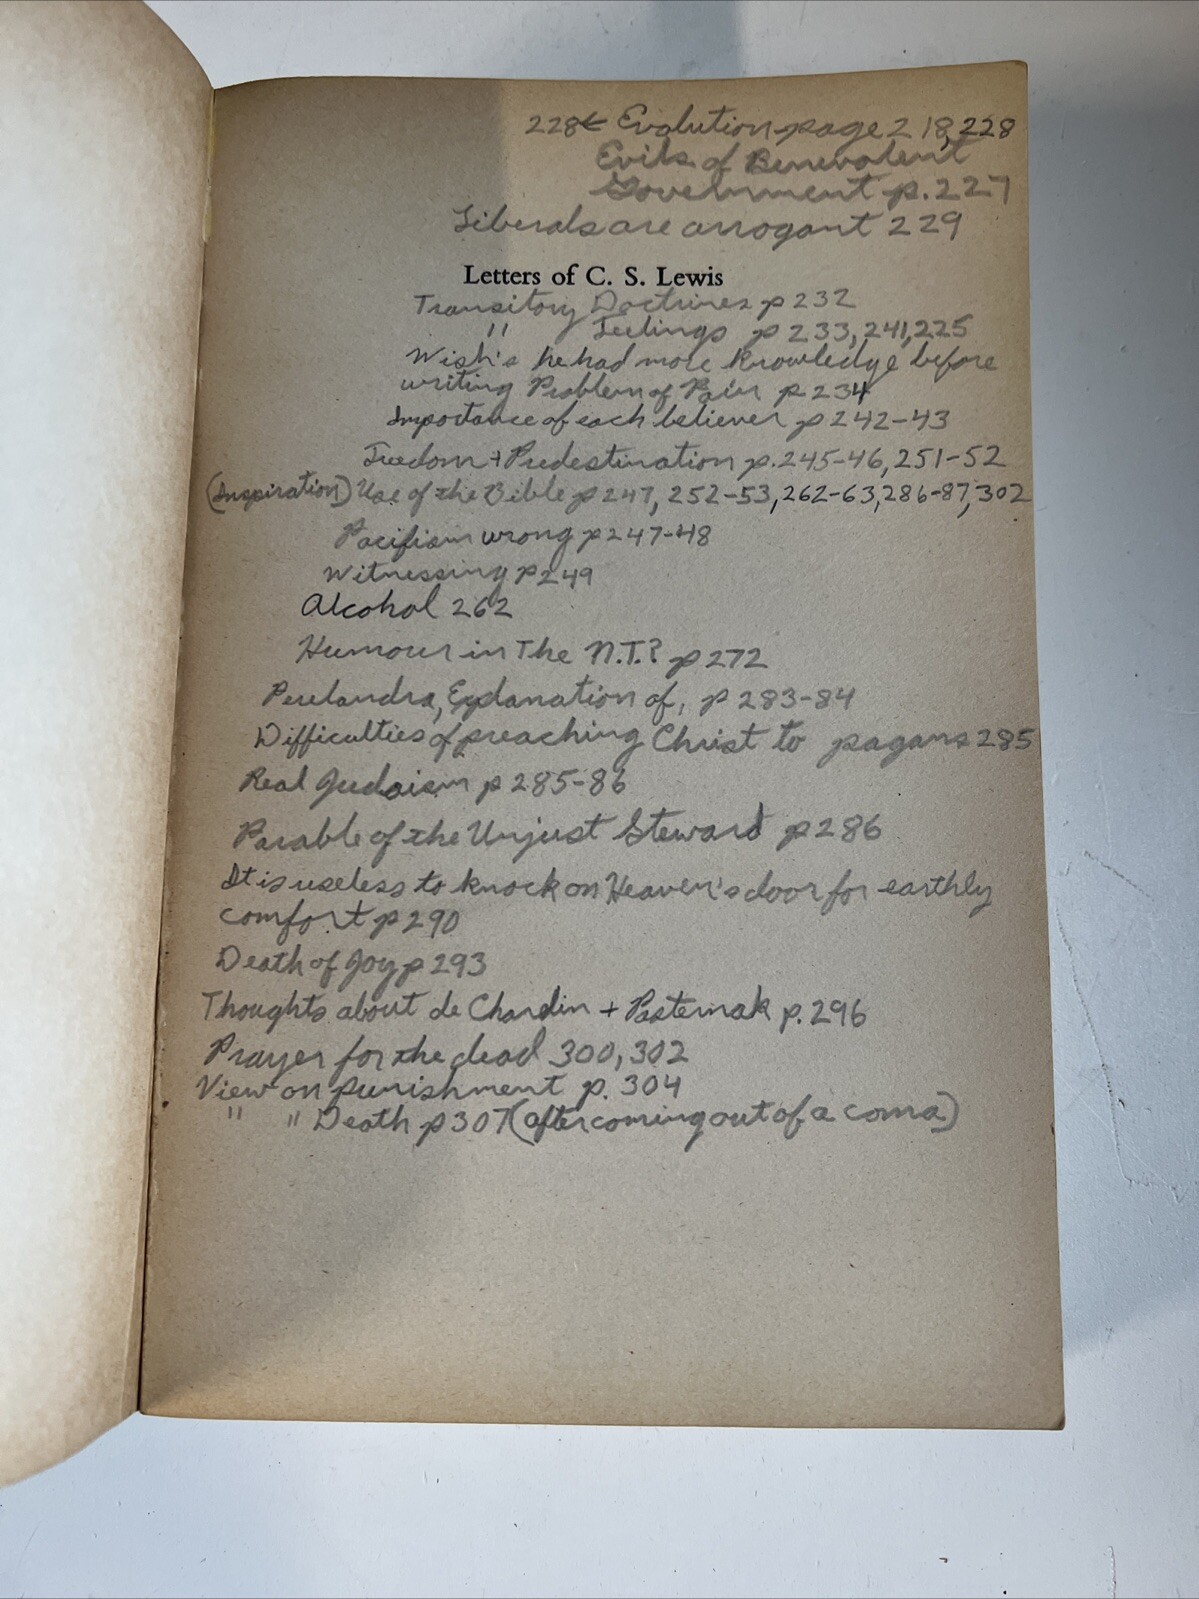 228← Evolution-page 218, 228
Evils of Benevolent
Government p. 227
Liberals are arrogant 229
Letters of C. S. Lewis
Transitory Doctrines p 232
" Feelings p 233, 241, 225
Wish's he had more knowledge before
writing Problem of Pain p 234
Importance of each believer p 242-43
Freedom + Predestination p. 245-46, 251-52
(Inspiration) Use of the Bible p 247, 252-53, 262-63, 286-87, 302
Pacifism wrong p 247-48
Witnessing p 249
Alcohol 262
Humour in The N.T.? p 272
Perelandra, Explanation of, p 283-84
Difficulties of preaching Christ to pagans 285
Real Judaism p 285-86
Parable of the Unjust Steward p 286
It is useless to knock on Heaven's door for earthly
comfort p 290
Death of Joy p 293
Thoughts about de Chardin + Pasternak p. 296
Prayer for the dead 300, 302
View on punishment p. 304
" " Death p 307 (after coming out of a coma)